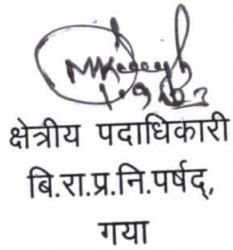 क्षेत्रीय पदाधिकारी
बि.रा.प्र.नि.पर्षद्,
गया